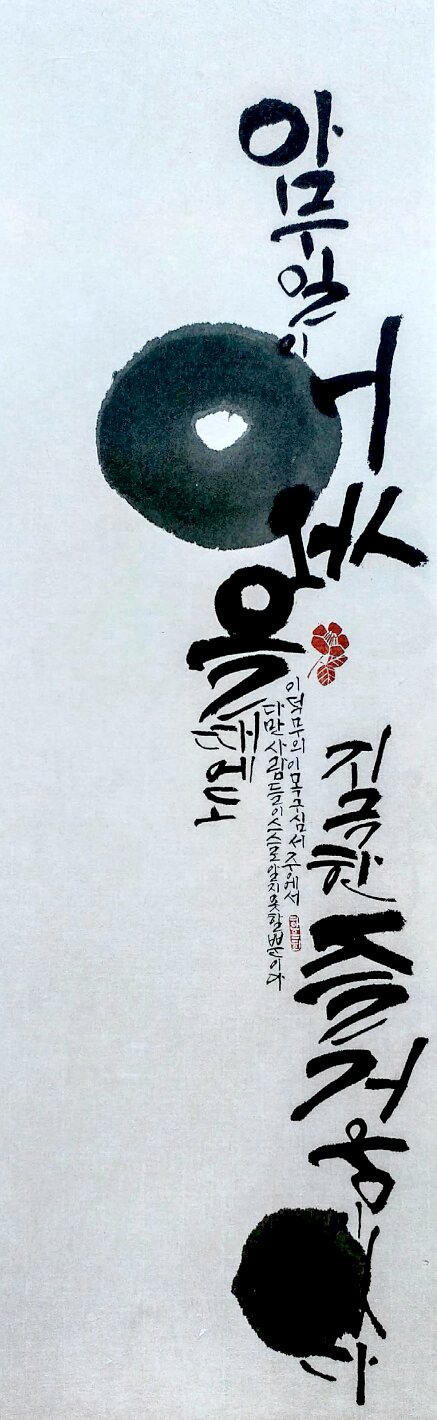 아무 일이
없을 때에도
지극한 즐거움
있다
이덕무의 이목구심서 중에서
다만 사람들이 스스로 알지 못할 뿐이다